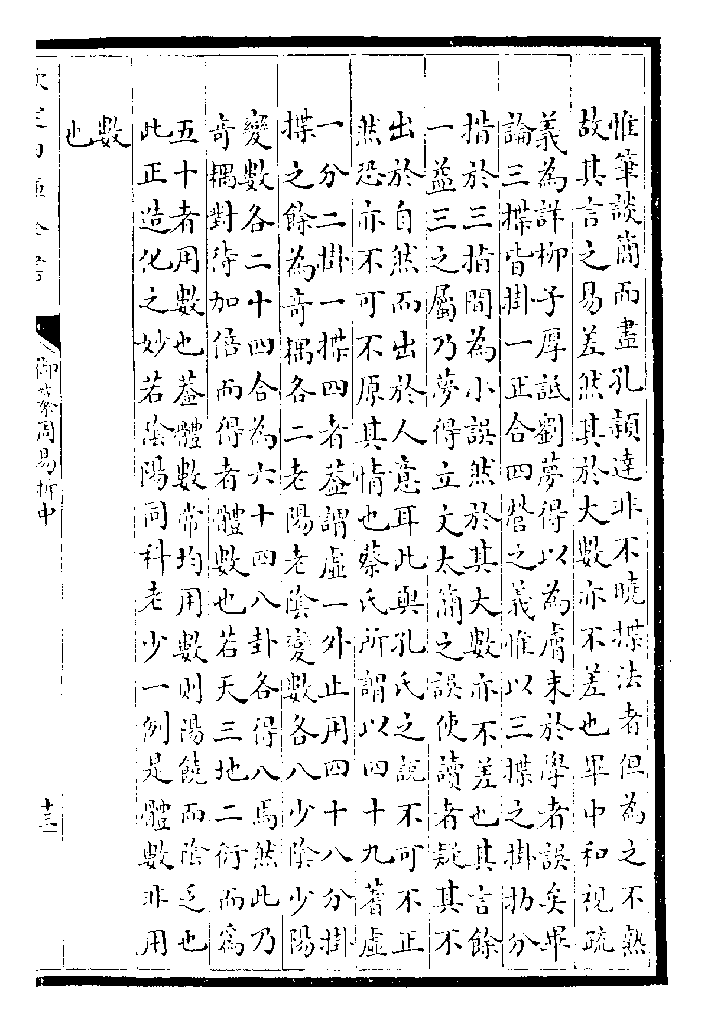 惟筆談簡而盡孔穎達非不曉揲法者但為之不熟
故其言之易差然其於大數亦不差也畢中和視疏
義為詳柳子厚詆劉夢得以為膚末於學者誤矣畢
論三揲皆掛一正合四營之義惟以三揲之掛扐分
措於三指間為小誤然於其大數亦不差也其言餘
一益三之屬乃夢得立文太簡之誤使讀者疑其不
出於自然而出於人意耳此與孔氏之說不可不正
然恐亦不可不原其情也蔡氏所謂以四十九蓍虛
一分二掛一揲四者葢謂虛一外止用四十八分掛
揲之餘為奇耦各二老陽老陰變數各八少陰少陽
變數各二十四合為六十四八卦各得八焉然此乃
奇耦對待加倍而得者體數也若天三地二衍而為
五十者用數也葢體數常均用數則陽饒而陰乏也
此正造化之妙若陰陽同科老少一例是體數非用
數
也
欽定四庫全書
御纂周易折中
十三